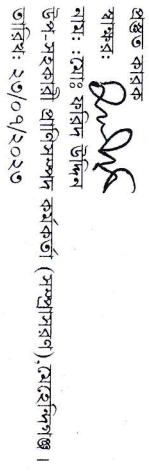 প্রস্তুত কারক
স্বাক্ষর:
নাম: : মোঃ ফরিদ উদ্দিন
উপ-সহকারী প্রাণিসম্পদ কর্মকর্তা (সম্প্রসারণ), মেহেন্দিগঞ্জ।
তারিখ: ২৭/০৭/২০২৩